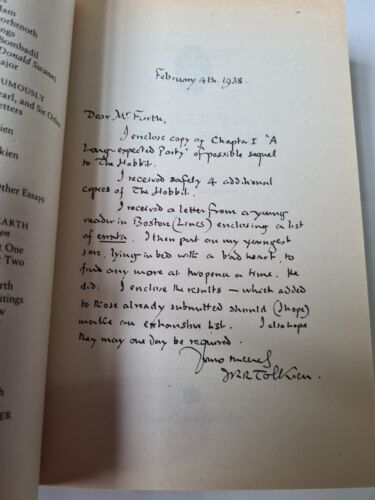 February 4th. 1938.
Dear Mr Furth,
I enclose copy of Chapter I "A
Long-expected Party" of possible sequel
to The Hobbit.
I received safely 4 additional
copies of The Hobbit.
I received a letter from a young
reader in Boston (Lincs) enclosing a list
of errata. I then put on my youngest
son, lying in bed with a bad heart, to
find any more at twopence a time. He
did. I enclose the results – which added
to those already submitted should (I hope)
make an exhaustive list. I also hope
they may one day be required.
Yours sincerely
JRR Tolkien.
ngs
Bombadil
Donald Swann)
ajor
UMOUSLY
earl, and Sir Orfeo
etters
ien
kien
ther Essays
EARTH
en
rt One
Two
rth
ritings
w
ER